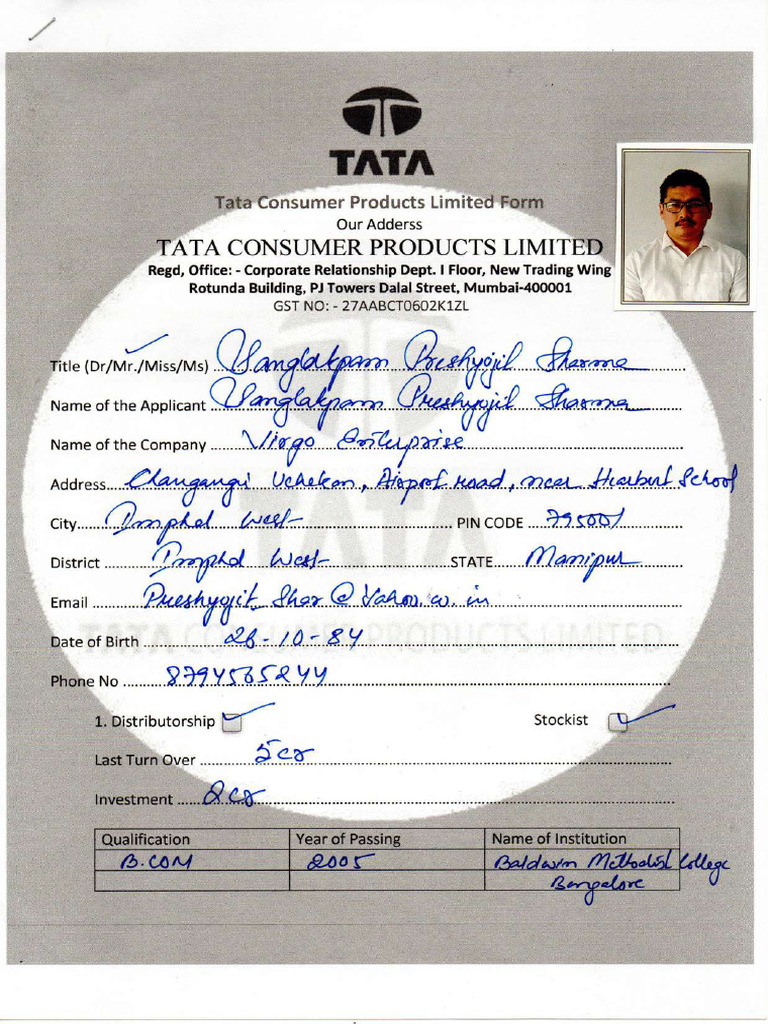 TATA
Tata Consumer Products Limited Form
Our Adderss
TATA CONSUMER PRODUCTS LIMITED
Regd, Office: - Corporate Relationship Dept. I Floor, New Trading Wing
Rotunda Building, PJ Towers Dalal Street, Mumbai-400001
GST NO: - 27AABCT0602K1ZL
Title (Dr/Mr./Miss/Ms) Yanglakpam Preshyojit Sharma
Name of the Applicant Yanglakpam Preshyojit Sharma
Name of the Company Virgo Enterprise
Address Changangei Uchekon, Airport road, near Hearbert School
City Imphal West PIN CODE 795001
District Imphal West STATE Manipur
Email Preshyojit_Shar@Yahoo.co.in
TATA CONSUMER PRODUCTS LIMITED
Date of Birth 26-10-84
Phone No 8794565244
1. Distributorship Stockist
Last Turn Over 5cr
Investment 2cr
Qualification Year of Passing Name of Institution
B.COM 2005 Baldwin Methodist College
Bangalore